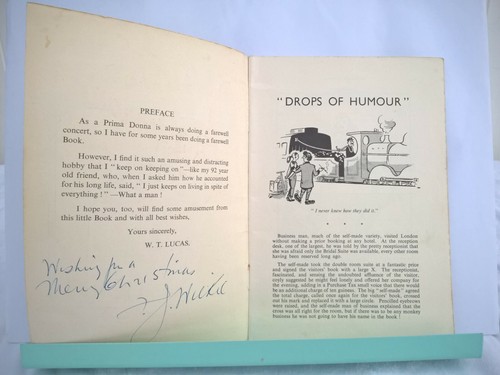 PREFACE
As a Prima Donna is always doing a farewell
concert, so I have for some years been doing a farewell
Book.
However, I find it such an amusing and distracting
hobby that I " keep on keeping on "—like my 92 year
old friend, who, when I asked him how he accounted
for his long life, said, " I just keeps on living in spite of
everything ! "—What a man !
I hope you, too, will find some amusement from
this little Book and with all best wishes,
Yours sincerely,
W. T. LUCAS.
Wishing you a
Merry Christmas
"DROPS OF HUMOUR"
" I never knew how they did it."
Business man, much of the self-made variety, visited London
without making a prior booking at any hotel. At the reception
desk, one of the largest, he was told by the pretty receptionist that
she was afraid only the Bridal Suite was available, every other room
having been reserved long ago.
The self-made took the double room suite at a fantastic price
and signed the visitors' book with a large X. The receptionist,
fascinated, and sensing the undoubted affluence of the visitor,
only suggested he might feel lonely and offered her company for
the evening, adding in a Purchase Tax small voice that there would
be an additional charge of ten guineas. The big " self-made " agreed
the total charge, called once again for the visitors' book, crossed
out his mark and replaced it with a large circle. Pencilled eyebrows
were raised, and the self-made man of business explained that the
cross was all right for the current room, but if there was to be any monkey
business he was not going to have his name to the book !